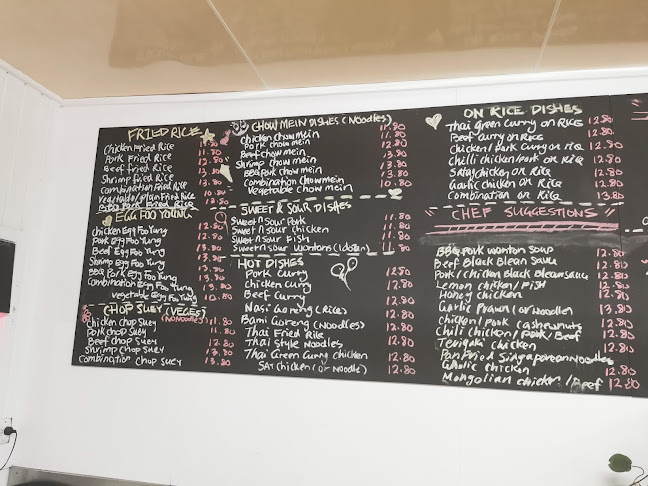 FRIED RICE
Chicken Fried Rice
Pork Fried Rice 11.80
Beef Fried Rice 12.80
Shrimp Fried Rice 13.80
Combination Fried Rice 13.80
Vegetable/Plain Fried Rice
BBQ Pork Fried Rice 13.50
EGG FOO YOUNG
Chicken Egg Foo Yung 12.80
Pork Egg Foo Yung 12.80
Beef Egg Foo Yung 13.80
Shrimp Egg Foo Yung 13.80
BBQ Pork Egg Foo Yung 13.80
Combination Egg Foo Yung 13.80
Vegetable Egg Foo Yung 10.80
CHOP SUEY (VEGES)
(NO NOODLES)
Chicken Chop Suey 11.80
Pork Chop Suey 11.80
Beef Chop Suey 12.80
Shrimp Chop Suey 13.80
Combination Chop Suey 13.80
CHOW MEIN DISHES (NOODLES)
Chicken Chow mein 11.80
Pork Chow mein 11.80
Beef Chow mein 12.80
Shrimp Chow mein 13.80
BBQ Pork Chow mein 13.80
Combination Chow mein 13.80
Vegetable Chow mein 10.80
SWEET & SOUR DISHES
Sweet n Sour Pork 11.80
Sweet n Sour Chicken 11.80
Sweet n Sour Fish 11.80
Sweet n Sour Wontons (1dozen) 11.80
HOT DISHES
Pork Curry 12.80
Chicken Curry 12.80
Beef Curry 12.80
Nasi Goreng (Rice) 12.80
Bami Goreng (Noodles) 12.80
Thai Fried Rice 12.80
Thai Style Noodles 12.80
Thai Green Curry Chicken 12.80
Sat Chicken (or Noodle) 12.80
ON RICE DISHES
Thai Green Curry on RICE 12.80
Beef Curry on RICE 12.80
Chicken/Pork Curry on RICE 12.80
Chilli Chicken/Pork on RICE 12.80
Satay Chicken on RICE 12.80
Garlic Chicken on RICE 12.80
Combination on RICE 13.80
"CHEF SUGGESTIONS"
BBQ Pork Wonton Soup 12.80
Beef Black Bean Sauce 12.80
Pork/Chicken Black Bean Sauce 12.80
Lemon Chicken/Fish 12.80
Honey Chicken 12.80
Garlic Prawn (or Noodle) 13.80
Chicken/Pork Cashewnuts 12.80
Chilli Chicken/Pork/Beef 12.80
Teriyaki Chicken 12.80
Pan Fried Singaporean Noodles 12.80
Garlic Chicken 12.80
Mongolian Chicken/Beef 12.80